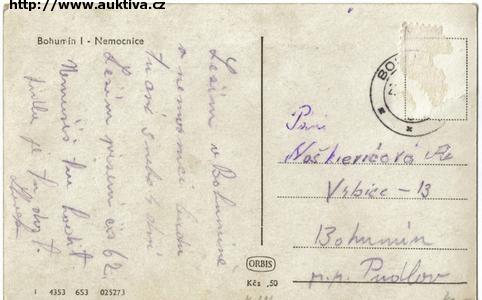 http://www.auktiva.cz
Bohumín I - Nemocnice
Ležím v Bohumíně
v nemocnici budu
tu asi 3 nebo 4 dní
Ležím písemí čís 62.
Nemusíš tu chodit
je tu
BO
Paní
Noskievičová
Vrbice - 13
Bohumín
p.p. Pudlov
ORBIS
Kčs ,50
I 4353 653 025273